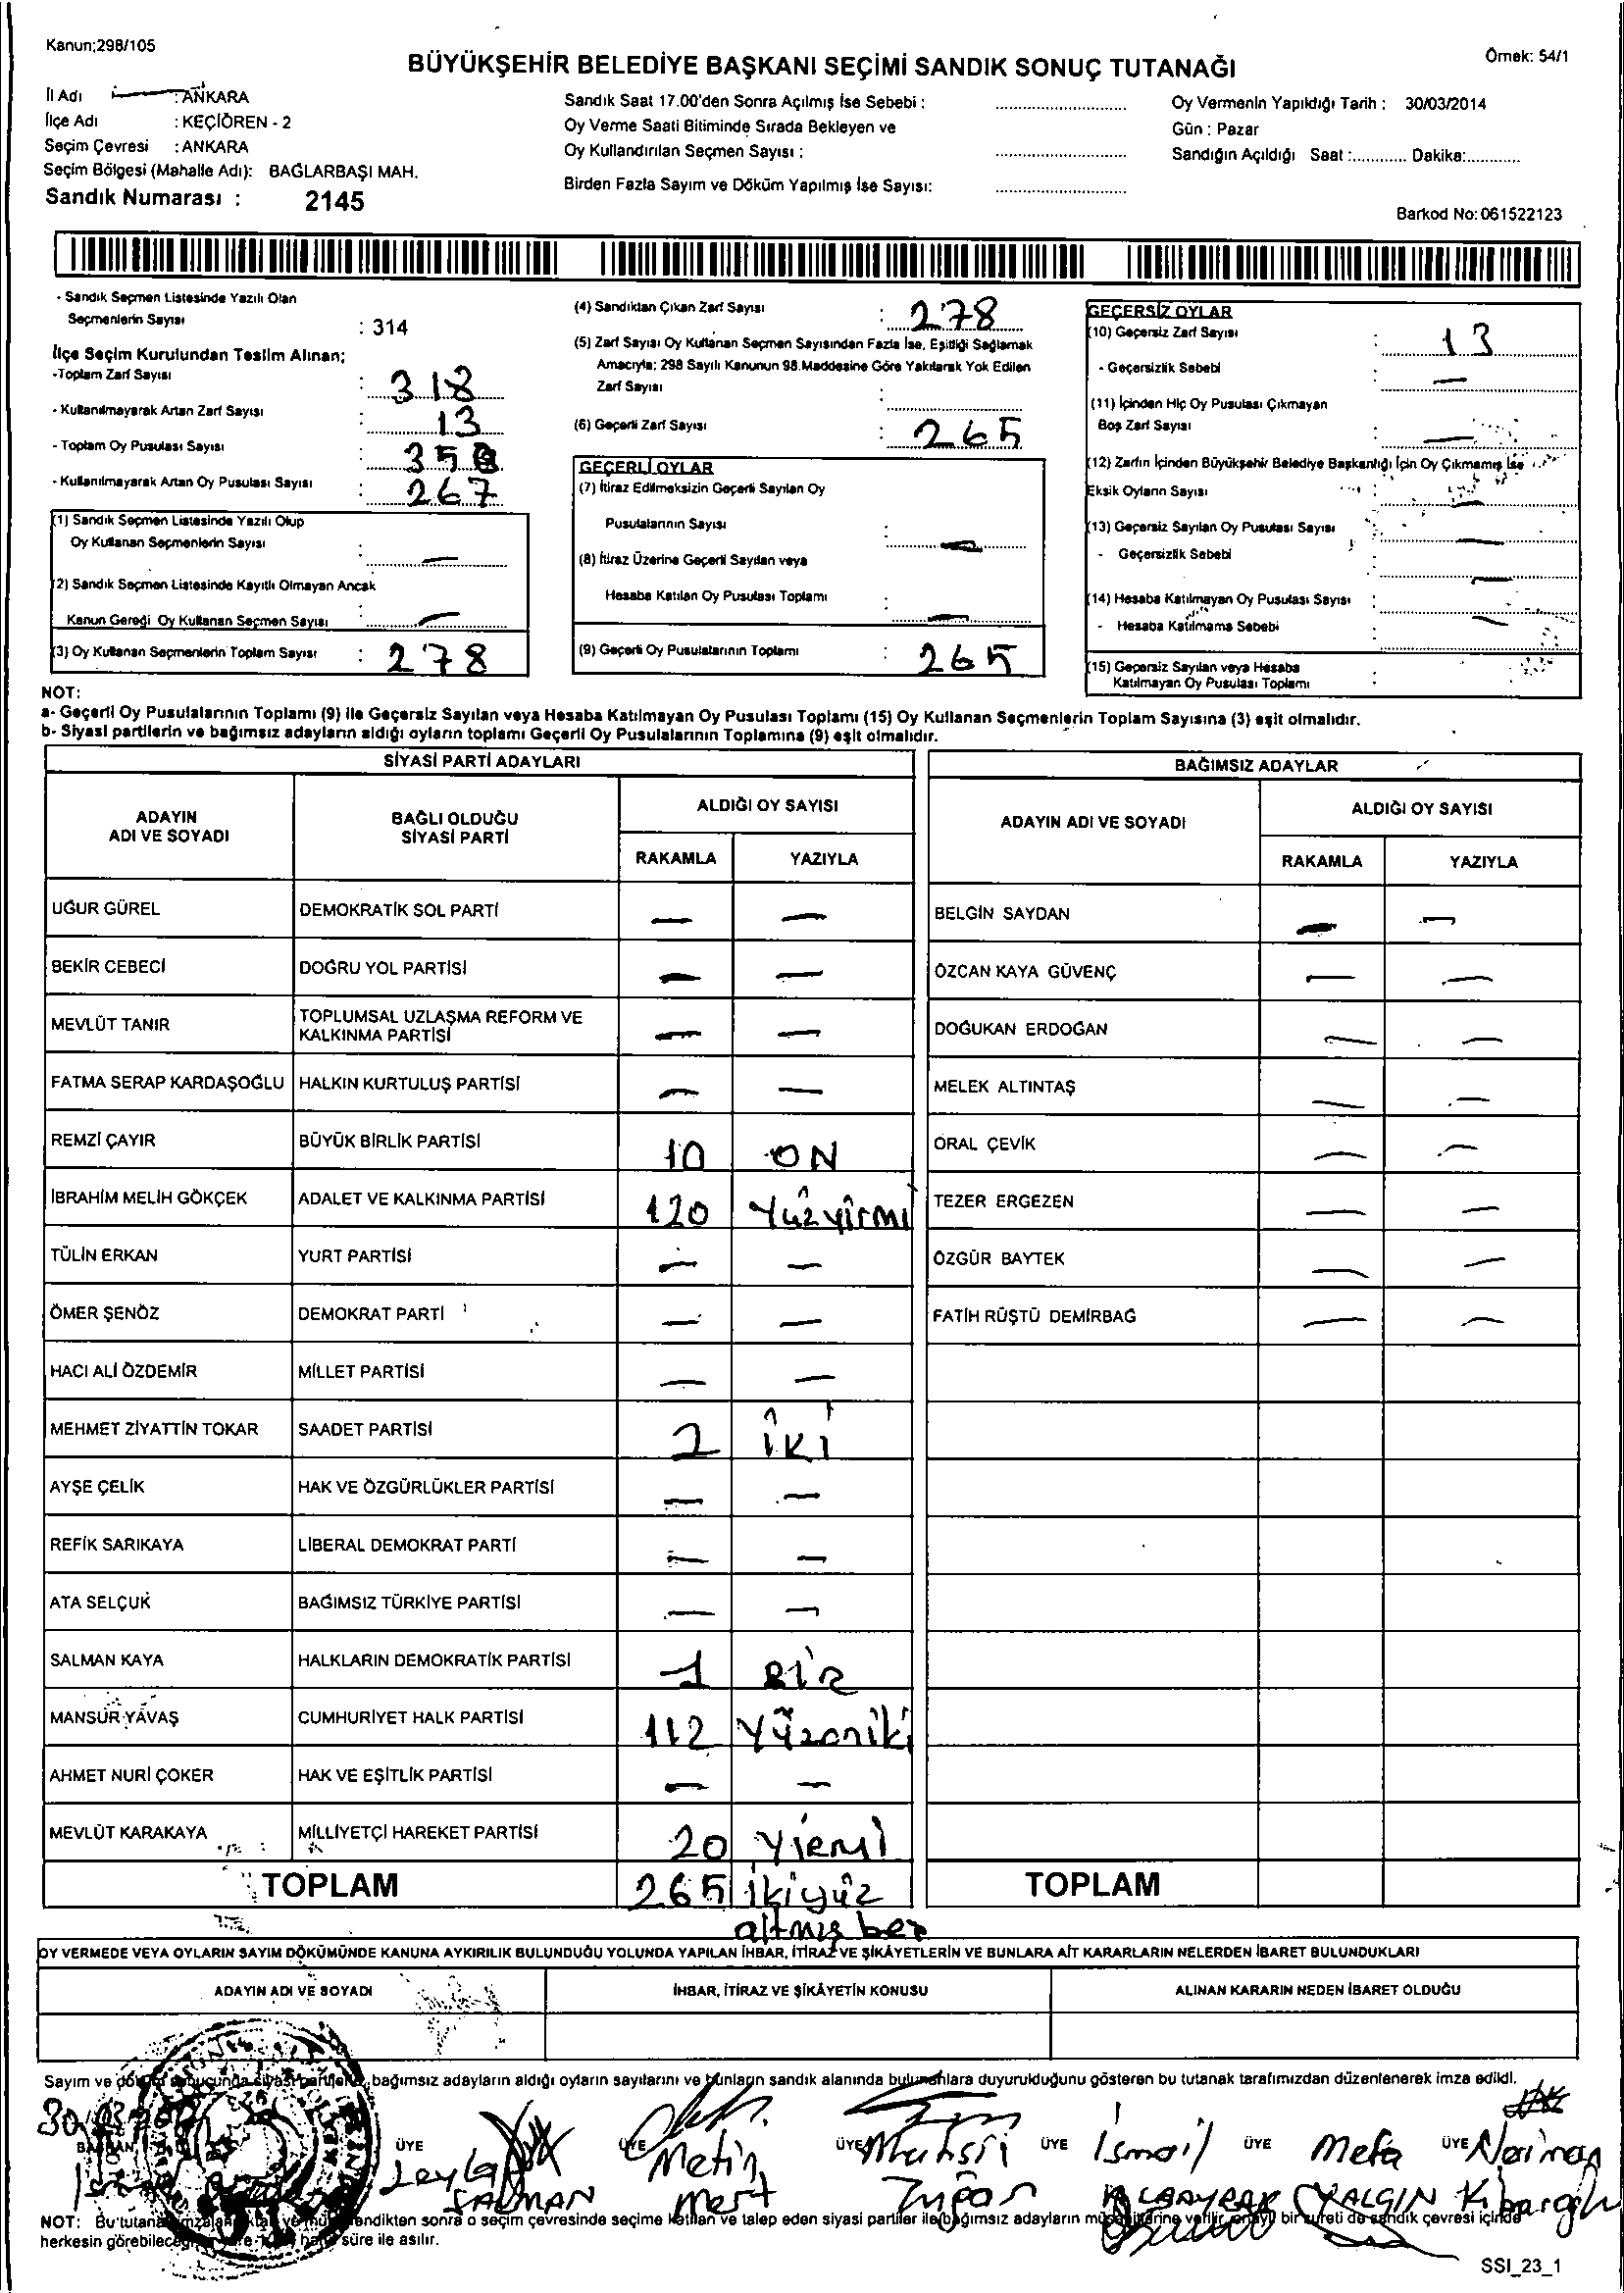 Kanun;298/105
BÜYÜKŞEHİR BELEDİYE BAŞKANI SEÇİMİ SANDIK SONUÇ TUTANAĞI
Örnek: 54/1
İl Adı : ANKARA
İlçe Adı : KEÇİÖREN - 2
Seçim Çevresi : ANKARA
Seçim Bölgesi (Mahalle Adı): BAĞLARBAŞI MAH.
Sandık Numarası : 2145
Sandık Saat 17.00'den Sonra Açılmış İse Sebebi :
Oy Verme Saati Bitiminde Sırada Bekleyen ve
Oy Kullandırılan Seçmen Sayısı :
Birden Fazla Sayım ve Döküm Yapılmış İse Sayısı:
Oy Vermenin Yapıldığı Tarih : 30/03/2014
Gün : Pazar
Sandığın Açıldığı Saat :............ Dakika:............
Barkod No: 061522123
- Sandık Seçmen Listesinde Yazılı Olan
Seçmenlerin Sayısı : 314
İlçe Seçim Kurulundan Teslim Alınan;
-Toplam Zarf Sayısı : 318
- Kullanılmayarak Artan Zarf Sayısı : 13
- Toplam Oy Pusulası Sayısı :
- Kullanılmayarak Artan Oy Pusulası Sayısı : 267
(1) Sandık Seçmen Listesinde Yazılı Olup
Oy Kullanan Seçmenlerin Sayısı : —
(2) Sandık Seçmen Listesinde Kayıtlı Olmayan Ancak
Kanun Gereği Oy Kullanan Seçmen Sayısı : —
(3) Oy Kullanan Seçmenlerin Toplam Sayısı : 278
(4) Sandıktan Çıkan Zarf Sayısı : 278
(5) Zarf Sayısı Oy Kullanan Seçmen Sayısından Fazla İse, Eşitliği Sağlamak
Amacıyla; 298 Sayılı Kanunun 98.Maddesine Göre Yakılarak Yok Edilen
Zarf Sayısı :
(6) Geçerli Zarf Sayısı : 265
GEÇERLİ OYLAR
(7) İtiraz Edilmeksizin Geçerli Sayılan Oy
Pusulalarının Sayısı : —
(8) İtiraz Üzerine Geçerli Sayılan veya
Hesaba Katılan Oy Pusulası Toplamı : —
(9) Geçerli Oy Pusulalarının Toplamı : 265
GEÇERSİZ OYLAR
(10) Geçersiz Zarf Sayısı : 13
- Geçersizlik Sebebi : —
(11) İçinden Hiç Oy Pusulası Çıkmayan
Boş Zarf Sayısı : —
(12) Zarfın İçinden Büyükşehir Belediye Başkanlığı İçin Oy Çıkmamış İse
Eksik Oyların Sayısı : —
(13) Geçersiz Sayılan Oy Pusulası Sayısı : —
- Geçersizlik Sebebi : —
(14) Hesaba Katılmayan Oy Pusulası Sayısı : —
- Hesaba Katılmama Sebebi :
(15) Geçersiz Sayılan veya Hesaba
Katılmayan Oy Pusulası Toplamı :
NOT:
a- Geçerli Oy Pusulalarının Toplamı (9) ile Geçersiz Sayılan veya Hesaba Katılmayan Oy Pusulası Toplamı (15) Oy Kullanan Seçmenlerin Toplam Sayısına (3) eşit olmalıdır.
b- Siyasi partilerin ve bağımsız adayların aldığı oyların toplamı Geçerli Oy Pusulalarının Toplamına (9) eşit olmalıdır.
SİYASİ PARTİ ADAYLARI
ADAYIN ADI VE SOYADI BAĞLI OLDUĞU SİYASİ PARTİ ALDIĞI OY SAYISI
RAKAMLA YAZIYLA
UĞUR GÜREL DEMOKRATİK SOL PARTİ — —
BEKİR CEBECİ DOĞRU YOL PARTİSİ — —
MEVLÜT TANIR TOPLUMSAL UZLAŞMA REFORM VE
KALKINMA PARTİSİ — —
FATMA SERAP KARDAŞOĞLU HALKIN KURTULUŞ PARTİSİ — —
REMZİ ÇAYIR BÜYÜK BİRLİK PARTİSİ 10 ON
İBRAHİM MELİH GÖKÇEK ADALET VE KALKINMA PARTİSİ 120 Yüzyirmi
TÜLİN ERKAN YURT PARTİSİ — —
ÖMER ŞENÖZ DEMOKRAT PARTİ — —
HACI ALİ ÖZDEMİR MİLLET PARTİSİ — —
MEHMET ZİYATTİN TOKAR SAADET PARTİSİ 2 İKİ
AYŞE ÇELİK HAK VE ÖZGÜRLÜKLER PARTİSİ — —
REFİK SARIKAYA LİBERAL DEMOKRAT PARTİ — —
ATA SELÇUK BAĞIMSIZ TÜRKİYE PARTİSİ — —
SALMAN KAYA HALKLARIN DEMOKRATİK PARTİSİ 1 BİR
MANSUR YAVAŞ CUMHURİYET HALK PARTİSİ 112 Yüzoniki
AHMET NURİ ÇOKER HAK VE EŞİTLİK PARTİSİ — —
MEVLÜT KARAKAYA MİLLİYETÇİ HAREKET PARTİSİ 20 Yirmi
TOPLAM 265 ikiyüz
altmış beş
BAĞIMSIZ ADAYLAR
ADAYIN ADI VE SOYADI ALDIĞI OY SAYISI
RAKAMLA YAZIYLA
BELGİN SAYDAN — —
ÖZCAN KAYA GÜVENÇ — —
DOĞUKAN ERDOĞAN — —
MELEK ALTINTAŞ — —
ORAL ÇEVİK — —
TEZER ERGEZEN — —
ÖZGÜR BAYTEK — —
FATİH RÜŞTÜ DEMİRBAĞ — —
TOPLAM
OY VERMEDE VEYA OYLARIN SAYIM DÖKÜMÜNDE KANUNA AYKIRILIK BULUNDUĞU YOLUNDA YAPILAN İHBAR, İTİRAZ VE ŞİKÂYETLERİN VE BUNLARA AİT KARARLARIN NELERDEN İBARET BULUNDUKLARI
ADAYIN ADI VE SOYADI İHBAR, İTİRAZ VE ŞİKÂYETİN KONUSU ALINAN KARARIN NEDEN İBARET OLDUĞU
Sayım ve döküm sonucunda siyasi partilerin, bağımsız adayların aldığı oyların sayılarını ve bunların sandık alanında bulunanlara duyurulduğunu gösteren bu tutanak tarafımızdan düzenlenerek imza edildi.
BAŞKAN ÜYE ÜYE ÜYE ÜYE ÜYE ÜYE
Leyla Metin Muhsin İsmail Mefa Neriman
SALMAN Mert ALBAYRAK YALGIN
NOT: Bu tutanak endikten sonra o seçim çevresinde seçime katılan ve talep eden siyasi partiler ile bağımsız adayların müşahitlerine verilir, onaylı bir sureti de sandık çevresi içinde
herkesin görebileceği süre ile asılır.
SSI_23_1